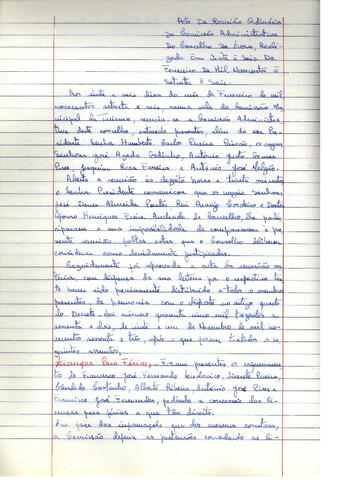 Acta Da Reunião Ordinária
Da Comissão Administrativa
Do Concelho De Évora, Reali-
zada Em Vinte E Seis De
Fevereiro De Mil Novecentos E
Setenta E Seis.
Aos vinte e seis dias do mês de Fevereiro de mil
novecentos setenta e seis, nesta sala da Comissão Mu-
nicipal de Turismo, reuniu-se a Comissão Administra-
tiva deste concelho, estando presentes, além do seu Pre-
sidente Senhor Humberto Carlos Pereira, os vogais
Senhores José Godinho, António Justo Tomaz
Pires, Joaquim Rosa Ferreira e António José.
Aberta a reunião às dezoito horas e trinta minutos
o Senhor Presidente comunicou que os vogais Senhores
José Almeida, Rui Araújo Cordeiro e Doutor
Afonso Henriques Andrade de Carvalho, lhe parti-
ciparam a sua impossibilidade de comparecerem à pre-
sente reunião, faltas estas que o Conselho deliberou
considerar como devidamente justificadas.
Seguidamente foi aprovada a acta da reunião an-
terior, com dispensa da sua leitura, e o respectivo tex-
to haver sido previamente distribuído a todos os membros
presentes, de harmonia com o disposto no artigo quarto
do Decreto-Lei número quarenta cinco mil trezentos e
sessenta e dois, de vinte e um de Novembro de mil no-
vecentos sessenta e três, após o que foram tratados os se-
guintes assuntos.
Licenças Para Férias, - Foram presentes os requerimen-
tos de Francisco José Fernando, Pereira,
Cândido Castanho, Alberto Ribeiro António José Pires e
Francisco José Fernandes, pedindo a concessão das li-
cenças para férias a que têm direito.
Em face das informações que dos mesmos constam,
a Comissão deferiu as pretensões concedendo as li-